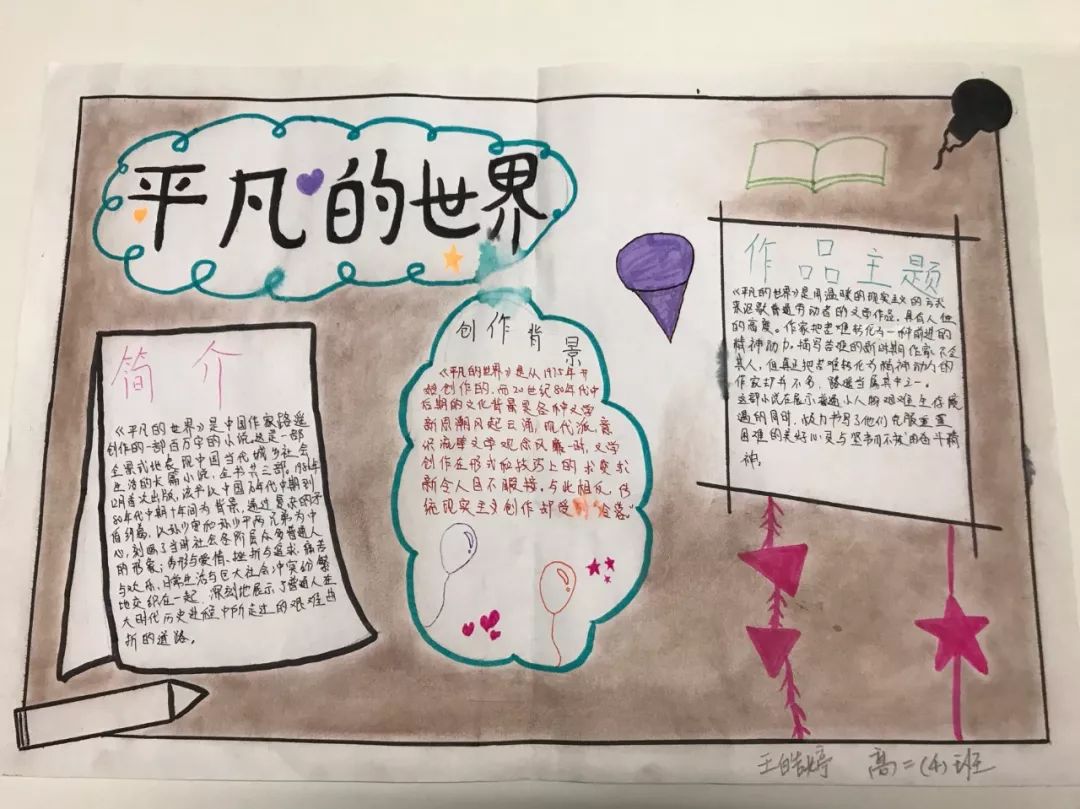 平凡的世界
简介
《平凡的世界》是中国作家路遥
创作的一部百万字的小说。这是一部
全景式地表现中国当代城乡社会
生活的长篇小说，全书共三部。1986年
12月首次出版，该书以中国70年代中期到
80年代中期十年间为背景，通过复杂的矛
盾纠葛，以孙少安和孙少平两兄弟为中
心，刻画了当时社会各阶层众多普通人
的形象；劳动与爱情、挫折与追求、痛苦
与欢乐、日常生活与巨大社会冲突纷繁
地交织在一起，深刻地展示了普通人在
大时代历史进程中所走过的艰难曲
折的道路。
创作背景
《平凡的世界》是从1975年开
始创作的，而20世纪80年代中
后期的文化背景是各种文学
新思潮风起云涌，现代派、意
识流等文学观念风靡一时，文学
创作在形式和技巧上的求变求
新令人目不暇接。与此相反，传
统现实主义创作却受到"冷落"。
作品主题
《平凡的世界》是用温暖的现实主义的方式
来讴歌普通劳动者的文学作品，具有人性
的高度。作家把苦难转化为一种前进的
精神动力。描写苦难的新时期作家不乏
其人，但真正把苦难转化为精神动力的
作家却并不多，路遥当属其中之一。
这部小说在展示普通小人物艰难生存境
遇的同时，极力书写了他们克服重重
困难的美好心灵与坚韧不拔的奋斗精
神。
王皓婷 高二(4)班